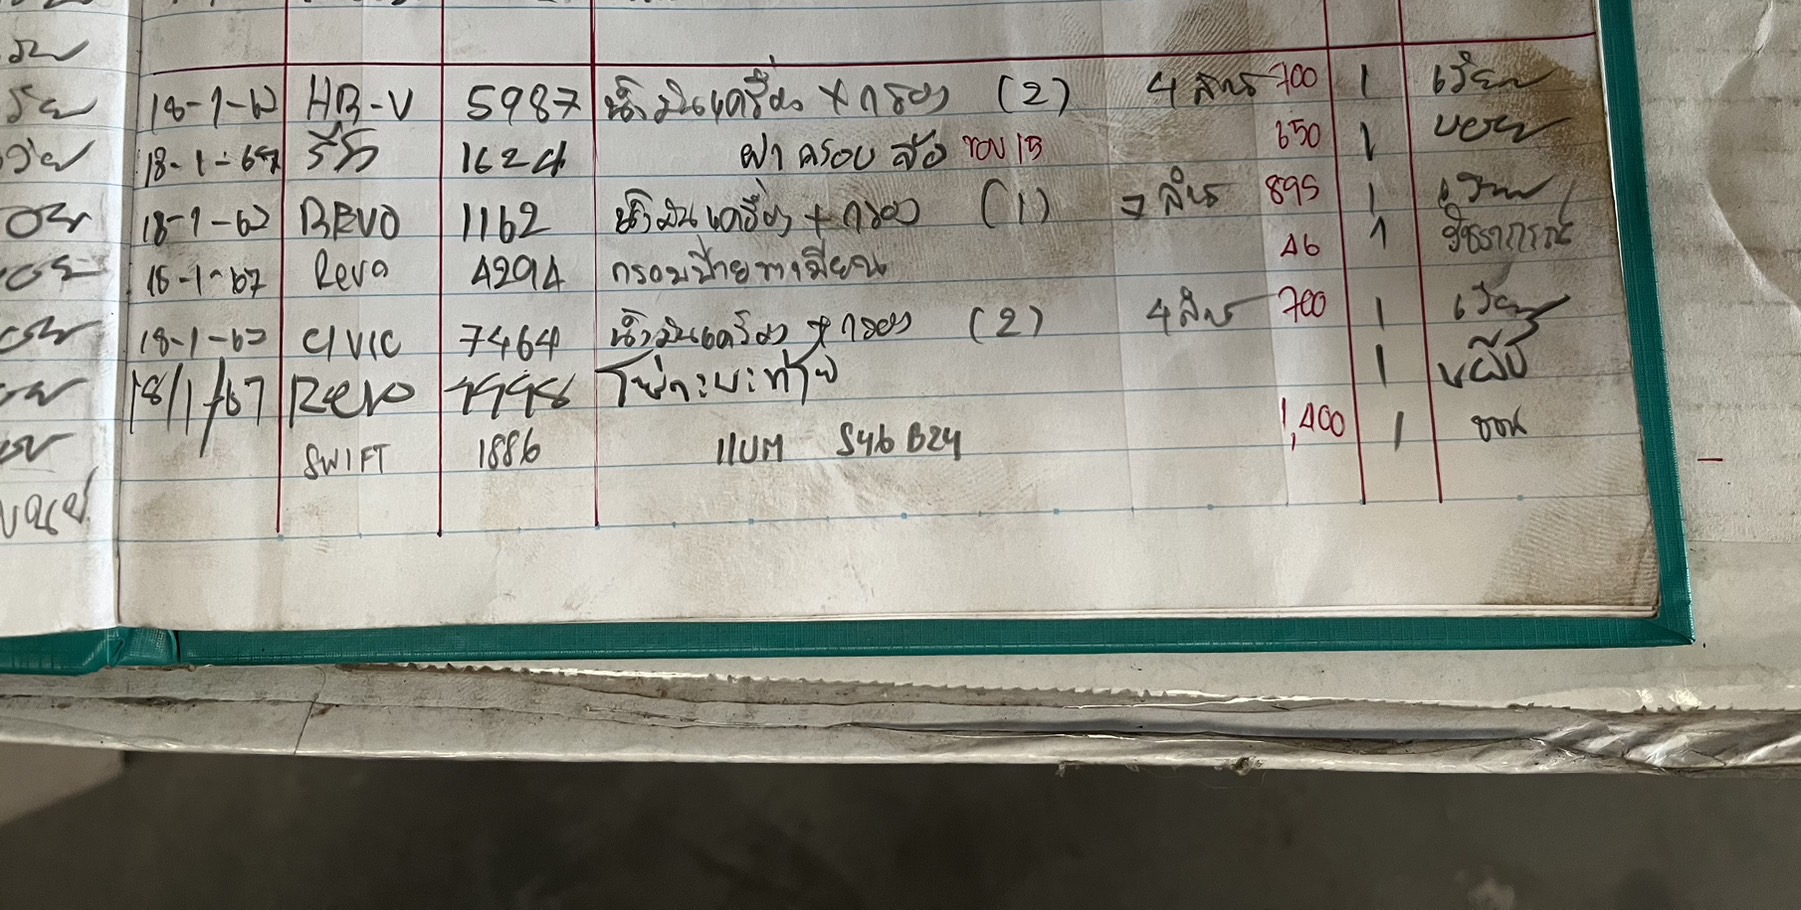 18-1-67 HR-V 5987 น้ำมันเครื่อง + กรอง (2) 4 ลิตร 700 1 เวียน
18-1-67 รีโว่ 1624 ฝาครอบล้อ ขอบ 15 650 1 บอย
18-1-67 REVO 1162 น้ำมันเครื่อง + กรอง (1) 7 ลิตร 895 1 เวียน
18-1-67 Revo 4294 กรอบป้ายทะเบียน 46 1
18-1-67 CIVIC 7464 น้ำมันเครื่อง + กรอง (2) 4 ลิตร 700 1 เวียน
18/1/67 Revo 1
SWIFT 1886 แบต S46 B24 1,400 1